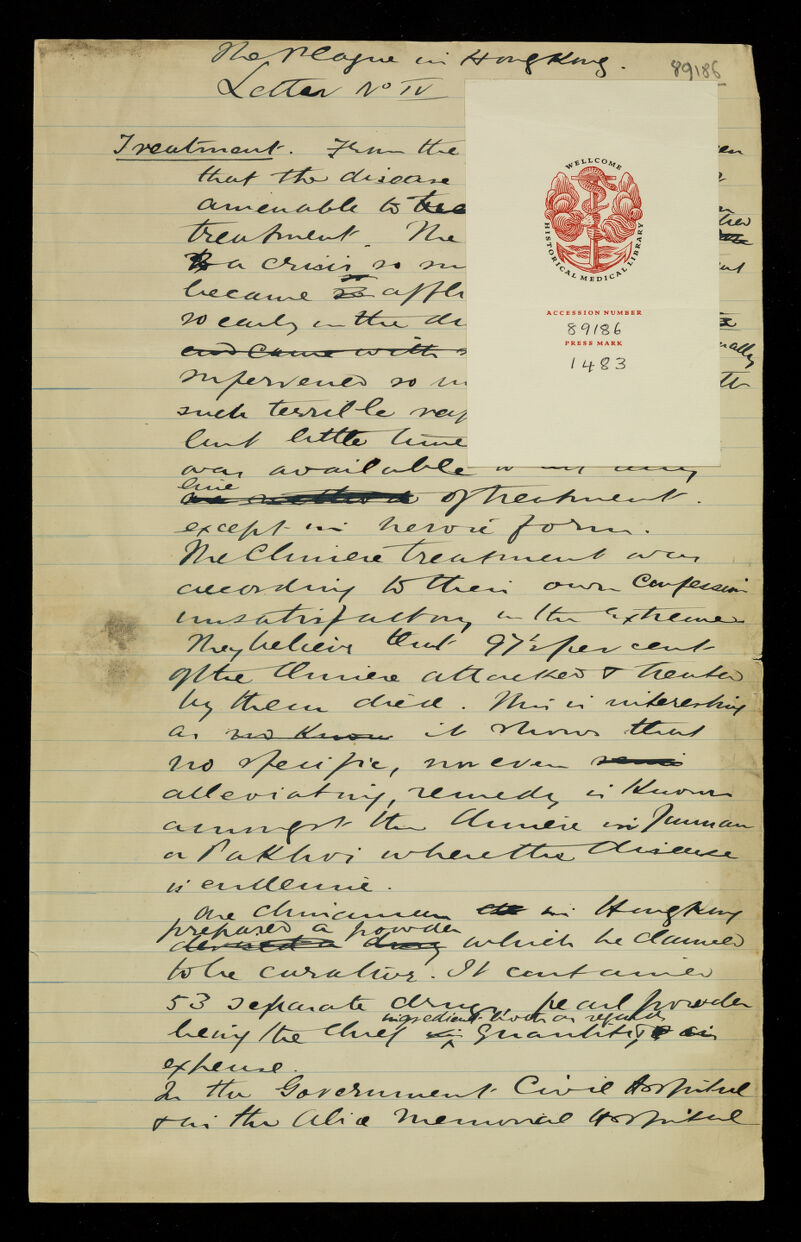 The Plague in HongKong.
89186
Letter No IV
Treatment. From the
that the disease
amenable to
treatment. The
a crisis so
became so
so early in the
and came with
supervened so
such terrible
but little time
was available
line
of treatment.
except in heroic form.
The Chinese treatment was
according to their own Confession
unsatisfactory in the extreme
They believe that 97½ per cent
of the Chinese attacked & treated
by them died. This is interesting
as no know it shows that
no specific, nor even
alleviating, remedy is Known
amongst the Chinese in Yunnan
or Pakhoi where the disease
is endemic.
One Chinaman in HongKong
prepared a powder
devised a drug which he claimed
to be curative. It contained
53 separate drugs, pearl powder
ingredient both as regards
being the Chief in quantity & in
expense.
In the Government Civil Hospital
& in the Alice Memorial Hospital
WELLCOME
HISTORICAL MEDICAL LIBRARY
ACCESSION NUMBER
89186
PRESS MARK
1483